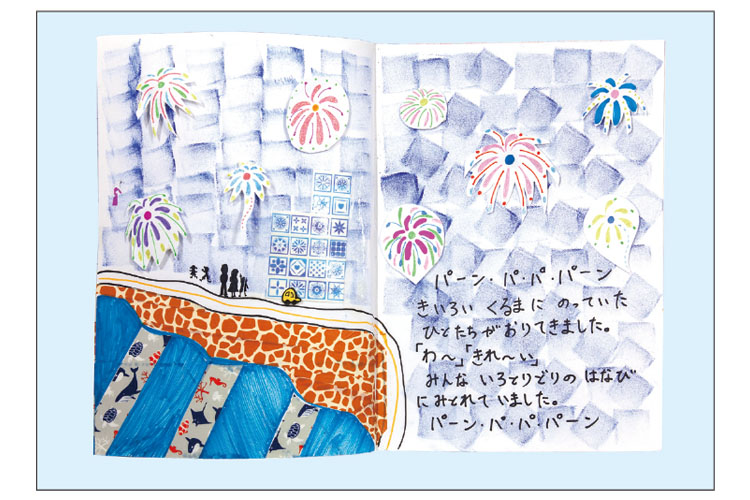 パーン・パ・パ・パーン
きいろい くるまに のっていた
ひとたちがおりてきました。
「わ〜」「きれ〜い」
みんな いろとりどりの はなび
にみとれていました。
パーン・パ・パ・パーン